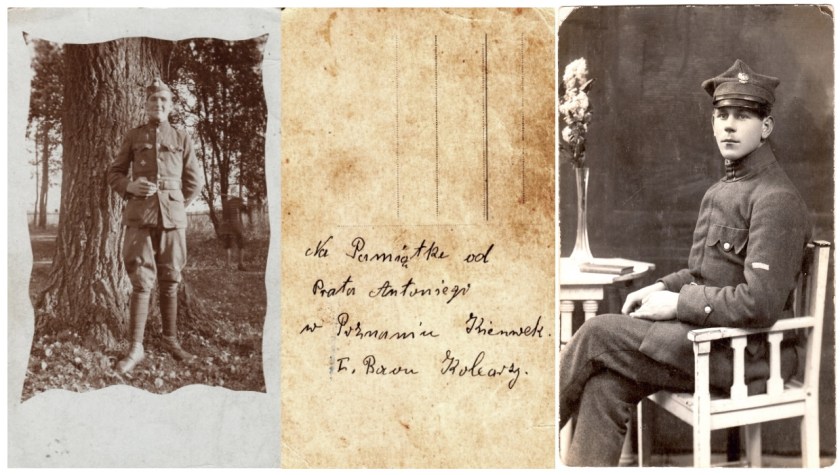 Na Pamiątke od
Brata Antoniego
w Poznaniu
Baon Kolearzy.